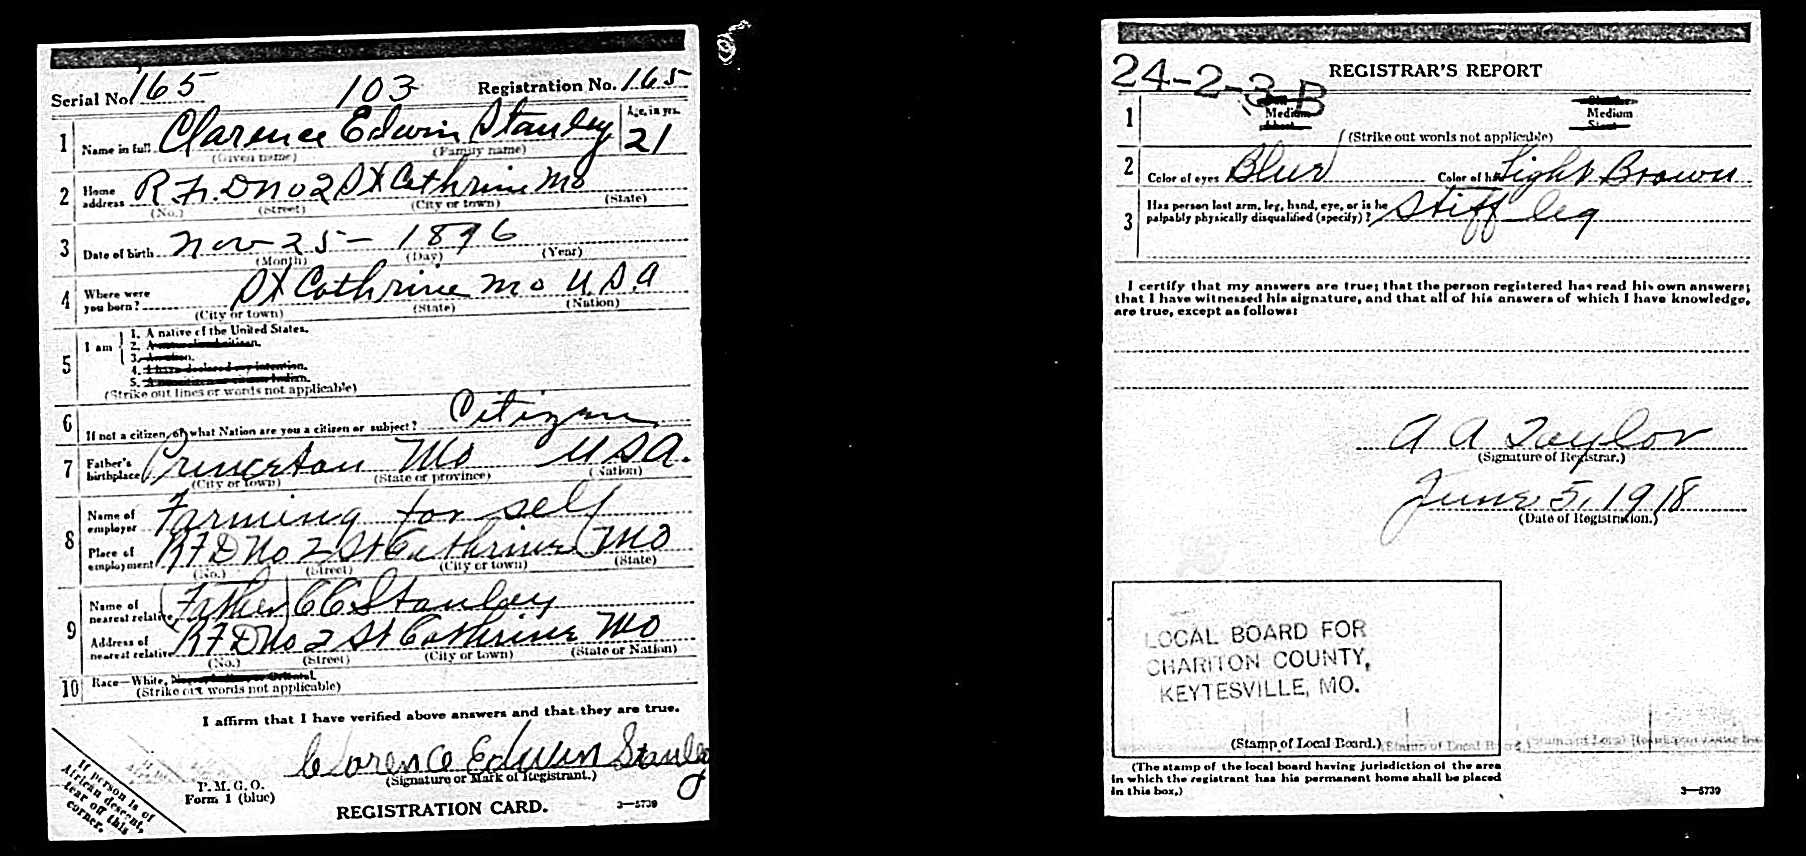 Serial No. 165 103 Registration No. 165
1 Name in full Clarence Edwin Stanley Age, in yrs. 21
(Given name) (Family name)
2 Home address R F. D No 2 St Cathrine Mo
(No.) (Street) (City or town) (State)
3 Date of birth Nov 25 - 1896
(Month) (Day) (Year)
4 Where were you born? St Cathrine Mo U.S.A
(City or town) (State) (Nation)
5 I am
1. A native of the United States.
2. A naturalized citizen.
3. An alien.
4. I have declared my intention.
5. A noncitizen or citizen Indian.
(Strike out lines or words not applicable)
6 If not a citizen, of what Nation are you a citizen or subject? Citizen
7 Father's birthplace Princeton Mo USA.
(City or town) (State or province) (Nation)
8 Name of employer Farming for self
Place of employment R F D No 2 St Cathrine Mo
(No.) (Street) (City or town) (State)
9 Name of nearest relative (Father) C C Stanley
Address of nearest relative R F D No 2 St Cathrine Mo
(No.) (Street) (City or town) (State or Nation)
10 Race—White, Negro, Indian, or Oriental.
(Strike out words not applicable)
I affirm that I have verified above answers and that they are true.
Clarence Edwin Stanley
(Signature or Mark of Registrant.)
P. M. G. O.
Form 1 (blue)
REGISTRATION CARD. 3—5739
If person is of
African descent,
tear off this
corner.
24-2-3-B
REGISTRAR'S REPORT
1 Medium Medium
(Strike out words not applicable)
2 Color of eyes Blue Color of hair Light Brown
3 Has person lost arm, leg, hand, eye, or is he
palpably physically disqualified (specify)? Stiff leg
I certify that my answers are true; that the person registered has read his own answers;
that I have witnessed his signature, and that all of his answers of which I have knowledge,
are true, except as follows:
A A Taylor
(Signature of Registrar.)
June 5, 1918
(Date of Registration.)
LOCAL BOARD FOR
CHARITON COUNTY,
KEYTESVILLE, MO.
(Stamp of Local Board.)
(The stamp of the local board having jurisdiction of the area
in which the registrant has his permanent home shall be placed
in this box.)
3—5739